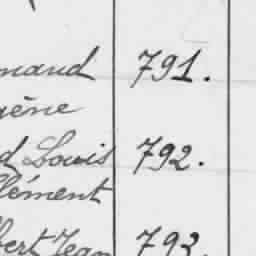 mand 791.
gène
d Louis 792.
lément
bert Jean 793.